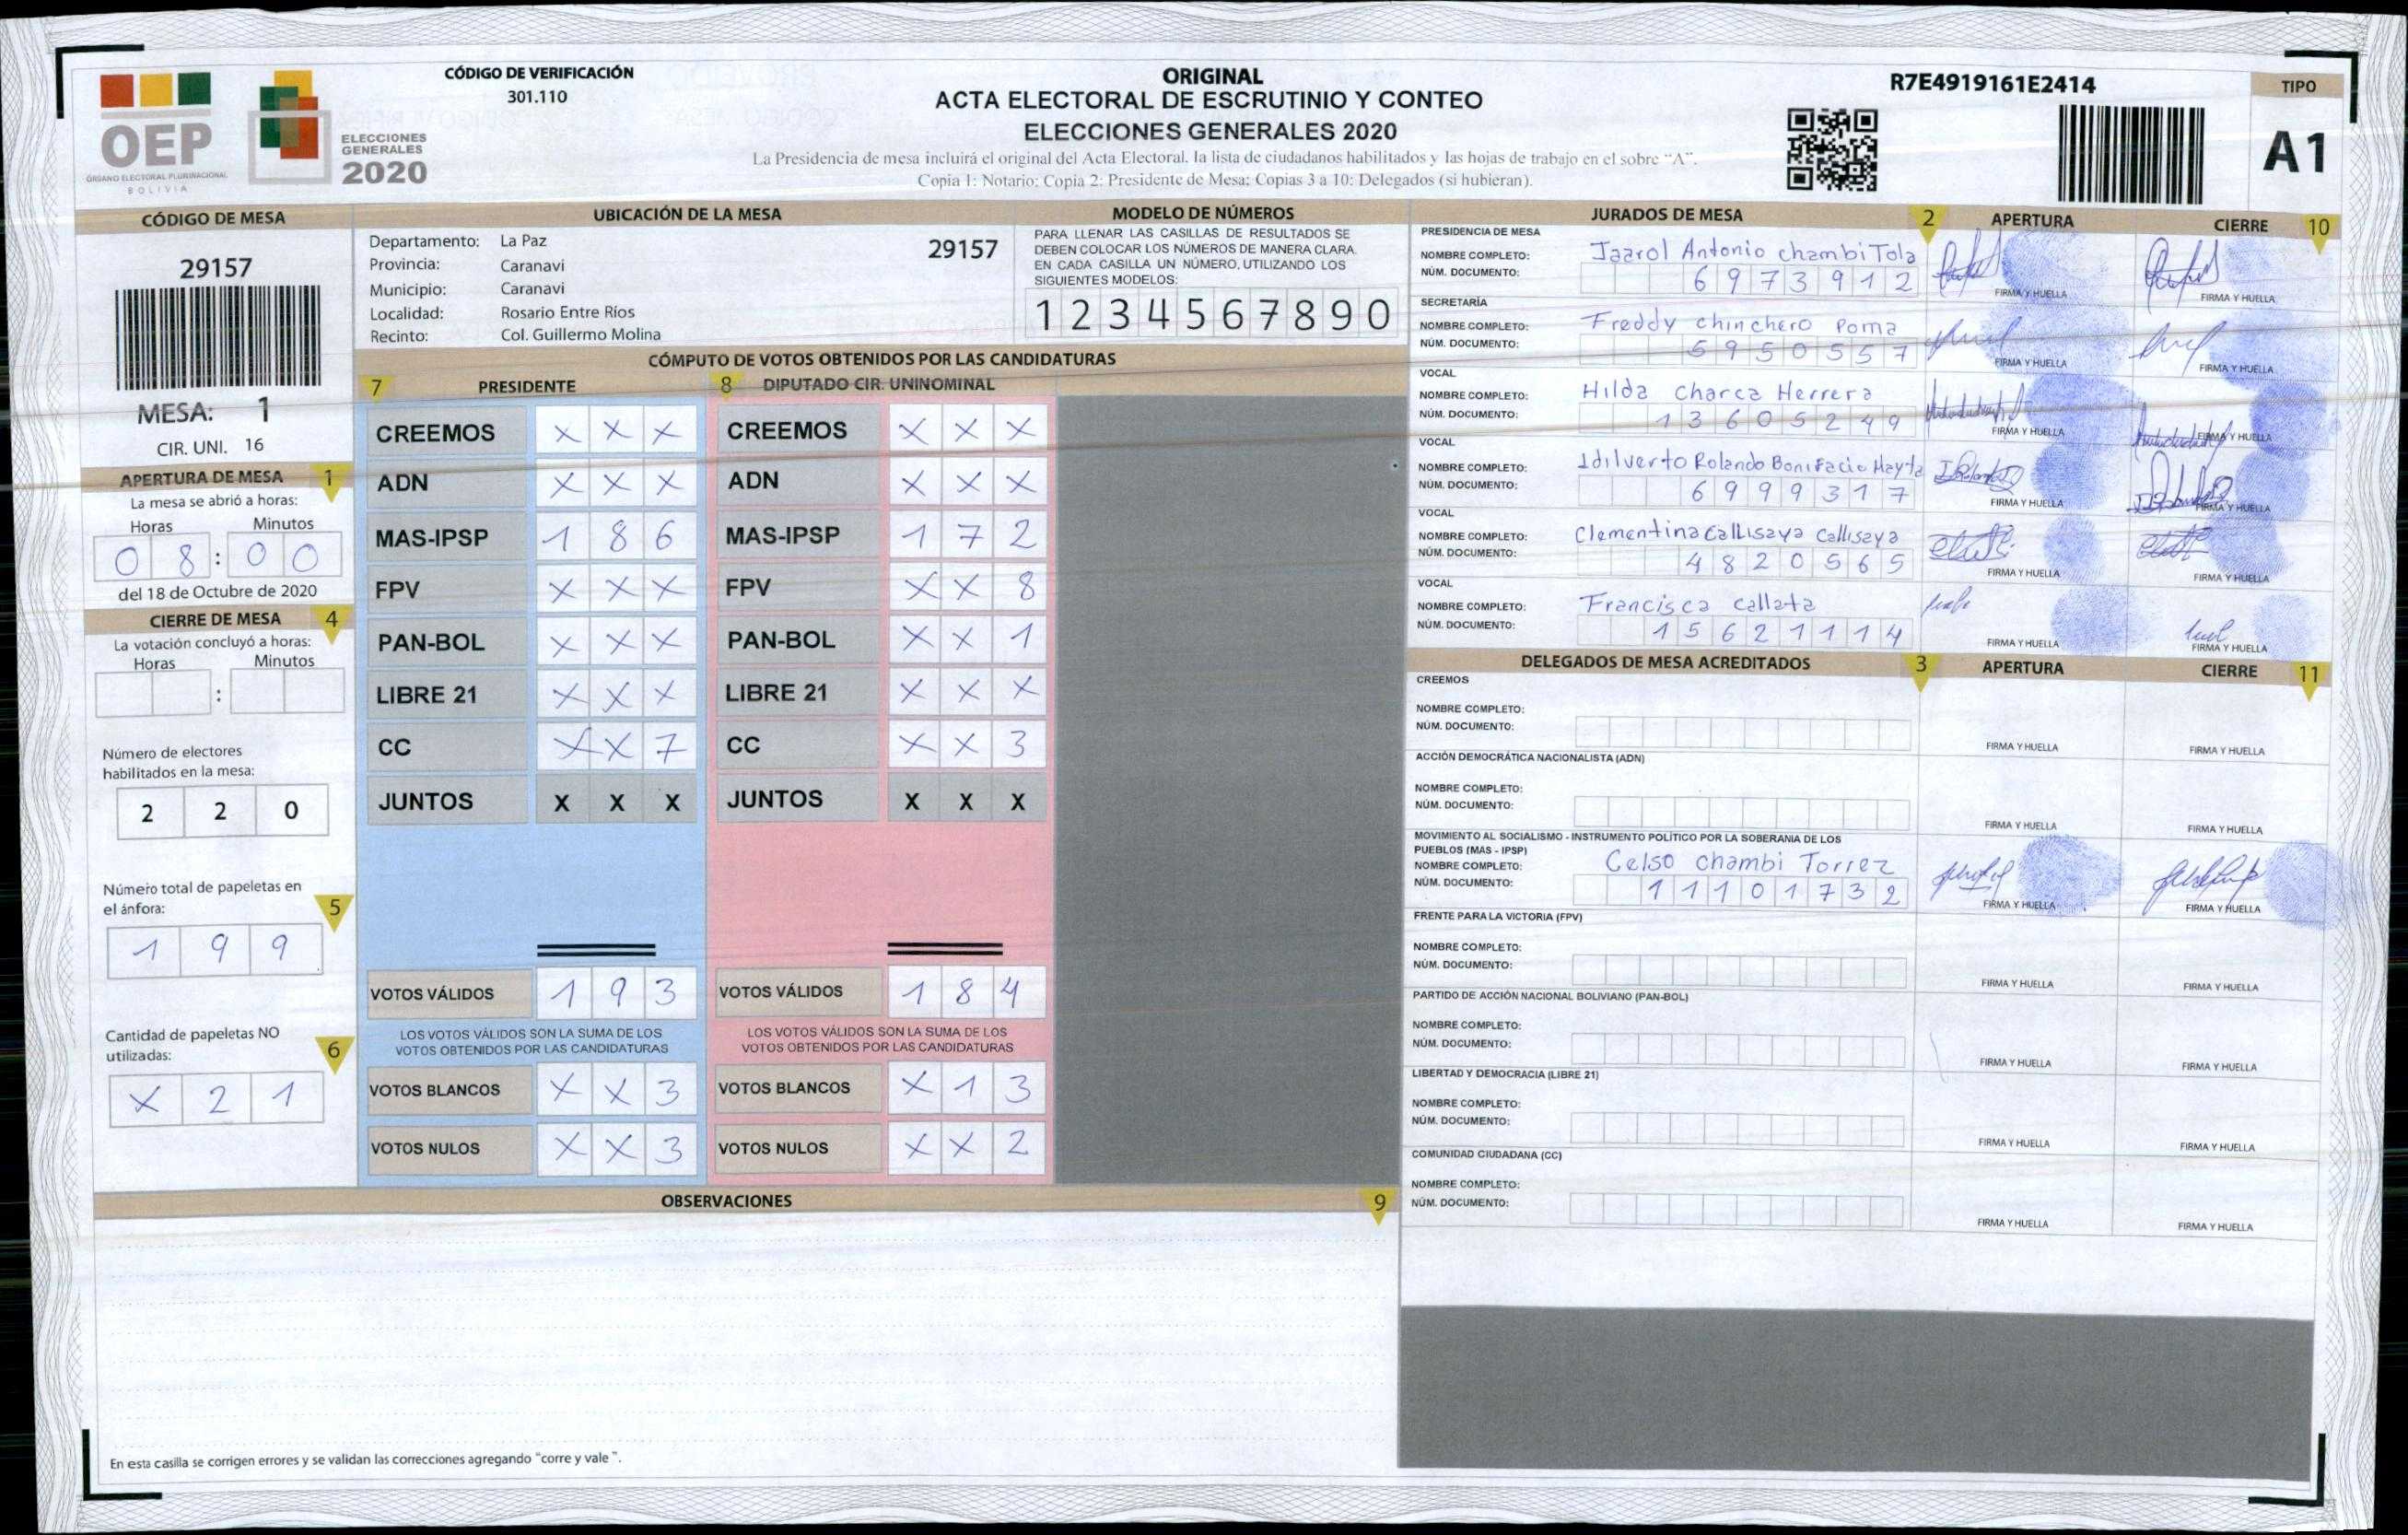 CÓDIGO DE VERIFICACIÓN
301.110
ORIGINAL
ACTA ELECTORAL DE ESCRUTINIO Y CONTEO
ELECCIONES GENERALES 2020
La Presidencia de mesa incluirá el original del Acta Electoral. la lista de ciudadanos habilitados y las hojas de trabajo en el sobre “A”.
Copia 1: Notario: Copia 2: Presidente de Mesa: Copias 3 a 10: Delegados (si hubieran).
R7E4919161E2414
TIPO
A1
OEP
ÓRGANO ELECTORAL PLURINACIONAL
BOLIVIA
ELECCIONES
GENERALES
2020
CÓDIGO DE MESA
29157
MESA: 1
CIR. UNI. 16
APERTURA DE MESA 1
La mesa se abrió a horas:
Horas Minutos
0 8 : 0 0
del 18 de Octubre de 2020
CIERRE DE MESA 4
La votación concluyó a horas:
Horas Minutos
:
Número de electores
habilitados en la mesa:
2 2 0
Número total de papeletas en
el ánfora: 5
1 9 9
Cantidad de papeletas NO
utilizadas: 6
X 2 1
UBICACIÓN DE LA MESA
Departamento: La Paz 29157
Provincia: Caranavi
Municipio: Caranavi
Localidad: Rosario Entre Ríos
Recinto: Col. Guillermo Molina
MODELO DE NÚMEROS
PARA LLENAR LAS CASILLAS DE RESULTADOS SE
DEBEN COLOCAR LOS NÚMEROS DE MANERA CLARA.
EN CADA CASILLA UN NÚMERO, UTILIZANDO LOS
SIGUIENTES MODELOS:
1 2 3 4 5 6 7 8 9 0
CÓMPUTO DE VOTOS OBTENIDOS POR LAS CANDIDATURAS
7 PRESIDENTE
CREEMOS X X X
ADN X X X
MAS-IPSP 1 8 6
FPV X X X
PAN-BOL X X X
LIBRE 21 X X X
CC X X 7
JUNTOS X X X
VOTOS VÁLIDOS 1 9 3
LOS VOTOS VÁLIDOS SON LA SUMA DE LOS
VOTOS OBTENIDOS POR LAS CANDIDATURAS
VOTOS BLANCOS X X 3
VOTOS NULOS X X 3
8 DIPUTADO CIR. UNINOMINAL
CREEMOS X X X
ADN X X X
MAS-IPSP 1 7 2
FPV X X 8
PAN-BOL X X 1
LIBRE 21 X X X
CC X X 3
JUNTOS X X X
VOTOS VÁLIDOS 1 8 4
LOS VOTOS VÁLIDOS SON LA SUMA DE LOS
VOTOS OBTENIDOS POR LAS CANDIDATURAS
VOTOS BLANCOS X 1 3
VOTOS NULOS X X 2
OBSERVACIONES 9
En esta casilla se corrigen errores y se validan las correcciones agregando “corre y vale”.
JURADOS DE MESA 2 APERTURA CIERRE 10
PRESIDENCIA DE MESA
NOMBRE COMPLETO: Jaarol Antonio chambi Tola
NÚM. DOCUMENTO: 6973912
FIRMA Y HUELLA FIRMA Y HUELLA
SECRETARÍA
NOMBRE COMPLETO: Freddy chinchero Poma
NÚM. DOCUMENTO: 5950557
FIRMA Y HUELLA FIRMA Y HUELLA
VOCAL
NOMBRE COMPLETO: Hilda Charca Herrera
NÚM. DOCUMENTO: 13605249
FIRMA Y HUELLA FIRMA Y HUELLA
VOCAL
NOMBRE COMPLETO: Idilverto Rolando Bonifacio Mayta
NÚM. DOCUMENTO: 6999317
FIRMA Y HUELLA FIRMA Y HUELLA
VOCAL
NOMBRE COMPLETO: Clementina Callisaya Callisaya
NÚM. DOCUMENTO: 4820565
FIRMA Y HUELLA FIRMA Y HUELLA
VOCAL
NOMBRE COMPLETO: Francisca callata
NÚM. DOCUMENTO: 15621114
FIRMA Y HUELLA FIRMA Y HUELLA
DELEGADOS DE MESA ACREDITADOS 3 APERTURA CIERRE 11
CREEMOS
NOMBRE COMPLETO:
NÚM. DOCUMENTO:
FIRMA Y HUELLA FIRMA Y HUELLA
ACCIÓN DEMOCRÁTICA NACIONALISTA (ADN)
NOMBRE COMPLETO:
NÚM. DOCUMENTO:
FIRMA Y HUELLA FIRMA Y HUELLA
MOVIMIENTO AL SOCIALISMO - INSTRUMENTO POLÍTICO POR LA SOBERANIA DE LOS
PUEBLOS (MAS - IPSP)
NOMBRE COMPLETO: Celso chambi Torrez
NÚM. DOCUMENTO: 11101732
FIRMA Y HUELLA FIRMA Y HUELLA
FRENTE PARA LA VICTORIA (FPV)
NOMBRE COMPLETO:
NÚM. DOCUMENTO:
FIRMA Y HUELLA FIRMA Y HUELLA
PARTIDO DE ACCIÓN NACIONAL BOLIVIANO (PAN-BOL)
NOMBRE COMPLETO:
NÚM. DOCUMENTO:
FIRMA Y HUELLA FIRMA Y HUELLA
LIBERTAD Y DEMOCRACIA (LIBRE 21)
NOMBRE COMPLETO:
NÚM. DOCUMENTO:
FIRMA Y HUELLA FIRMA Y HUELLA
COMUNIDAD CIUDADANA (CC)
NOMBRE COMPLETO:
NÚM. DOCUMENTO:
FIRMA Y HUELLA FIRMA Y HUELLA